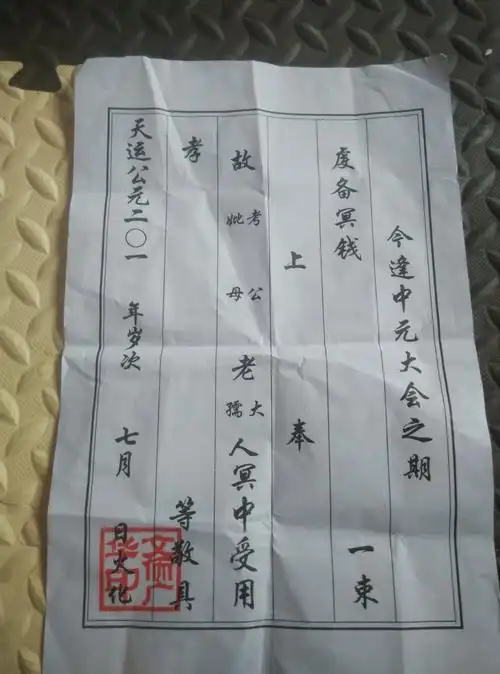 今逢中元大会之期
虔备冥钱 一束
上 奉
故 考妣 公母 老 大孺 人冥中受用
孝 等敬具
天运公元二〇一 年岁次 七月 日火化